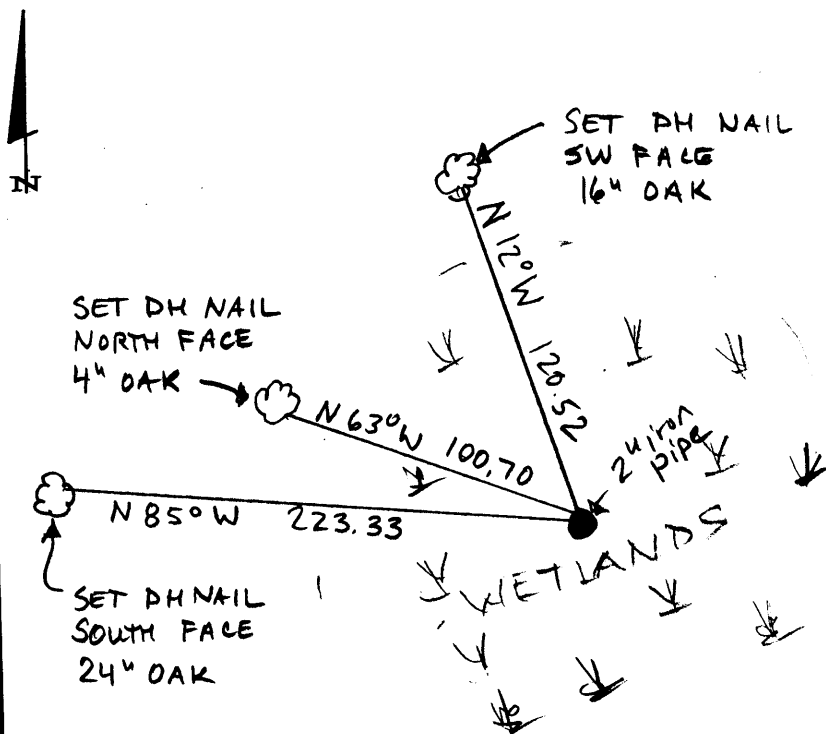 N
SET DH NAIL
SW FACE
16" OAK
N 12° W 120.52
SET DH NAIL
NORTH FACE
4" OAK
N 63° W 100.70
2" iron
pipe
N 85° W 223.33
WETLANDS
SET DH NAIL
SOUTH FACE
24" OAK